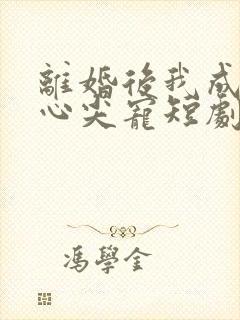 離婚後我成
心尖寵短劇
馮學金